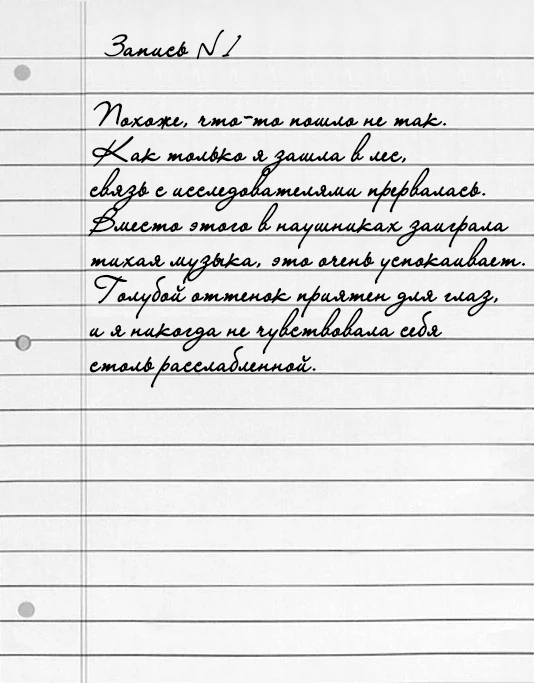 Запись N 1
Похоже, что-то пошло не так.
Как только я зашла в лес,
связь с исследователями прервалась.
Вместо этого в наушниках заиграла
тихая музыка, это очень успокаивает.
Голубой оттенок приятен для глаз,
и я никогда не чувствовала себя
столь расслабленной.